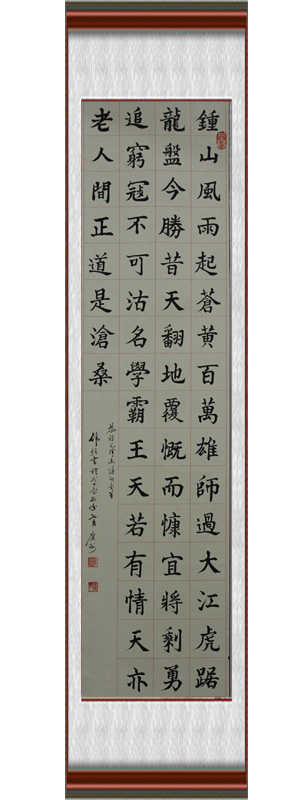 鍾山風雨起蒼黃百萬雄師過大江虎踞
龍盤今勝昔天翻地覆慨而慷宜將剩勇
追窮寇不可沽名學霸王天若有情天亦
老人間正道是滄桑